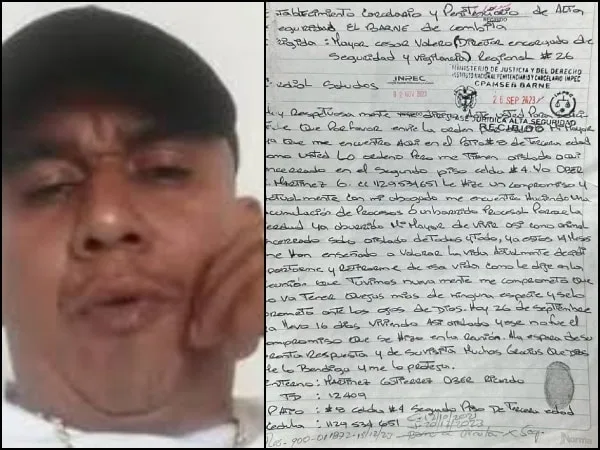 tablecimiento carcelario y Penitenciario de Alta
seguridad EL BARNE de combita
Dirigida: Mayor cesar Valero (Director encargado de
Seguridad y vigilancia) Regional # 26
cordial Saludos
INPEC
MINISTERIO DE JUSTICIA Y DEL DERECHO
INSTITUTO NACIONAL PENITENCIARIO Y CARCELARIO INPEC
CPAMSEB BARNE
26 SEP. 2023
JURIDICA ALTA SEGURIDAD
RECIBIDO
y Respetuosa mente usted Para
Que Por Favor envie la orden Mi Mayor
Que me encuentro AQUI en el Patio # 8 de Tercera edad
como Usted Lo ordeno Pero me Tienen aislado aqui
encerrado en el Segundo Piso celda # 4. Yo OBER
MARTINEZ G. cc 1129534651 Le Hize un compromiso y
actualmente con mi abogado me encuentro Haciendo una
acumulación de Procesos o unbarrido Procesal Para la
Libertad Ya aburrido Mi Mayor de Vivir asi como animal
encerrado solo aislado de Todos y Todo, ya estos Meses
me Han enseñado a Valorar la Vida Actualmente decidi
portarme y Retirarme de esa vida como le dije en la
reunión Que Tuvimos nueva mente me comprometo Que
no Va Tener Quejas mias de ninguna especie y se lo
prometo ante los ojos de Dios. Hoy 26 de septiembre
ya llevo 16 dias Viviendo Asi aislado y ese no fue el
compromiso Que se Hizo en la Reunión. Ala espera de su
pronta Respuesta y de su Visita Muchas Gracias Que Dios
me lo Bendiga y me lo proteja.
interno: MARTINEZ GUTIERREZ OBER Ricardo
TD: 12409
PATIO: # 8 celda # 4 Segundo Piso De Tercera edad
cedula: 1129 534 651
Norma